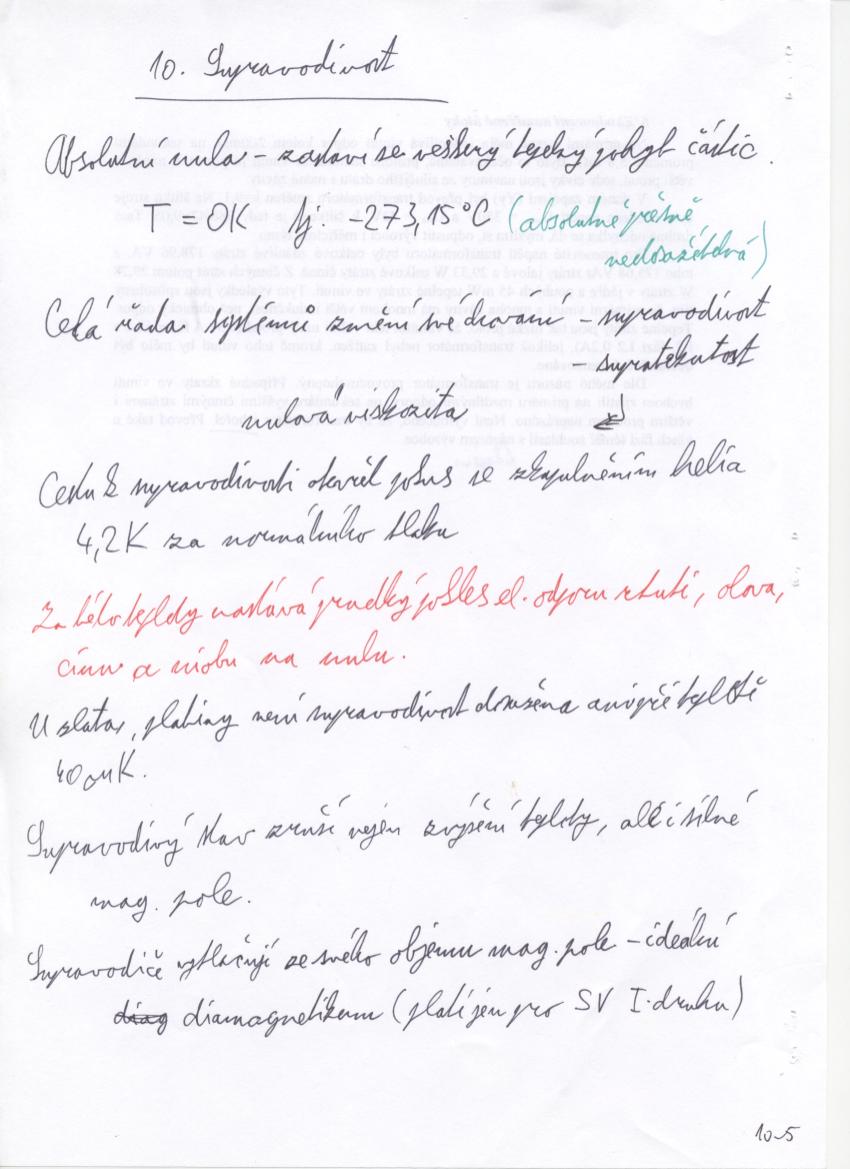 10. Supravodivost
Absolutní nula – zastaví se veškerý tepelný pohyb částic.
T = 0K tj -273,15°C (absolutně přesně
nedosažitelná)
Celá řada systémů změní své chování – supravodivost
– supratekutost
nulová viskozita
Cestu k supravodivosti otevřel pokus se zkapalněním helia
4,2K za normálního tlaku
Za této teploty nastává prudký pokles el. odporu rtuti, olova,
cínu a niobu na nulu.
U zlata, platiny není supravodivost dosažena ani při teplotě
40 mK.
Supravodivý stav zruší nejen zvýšení teploty, ale i silné
mag. pole.
Supravodiče vytlačují ze svého objemu mag. pole – ideální
diamagnetikum (platí jen pro SV I. druhu)
10-5